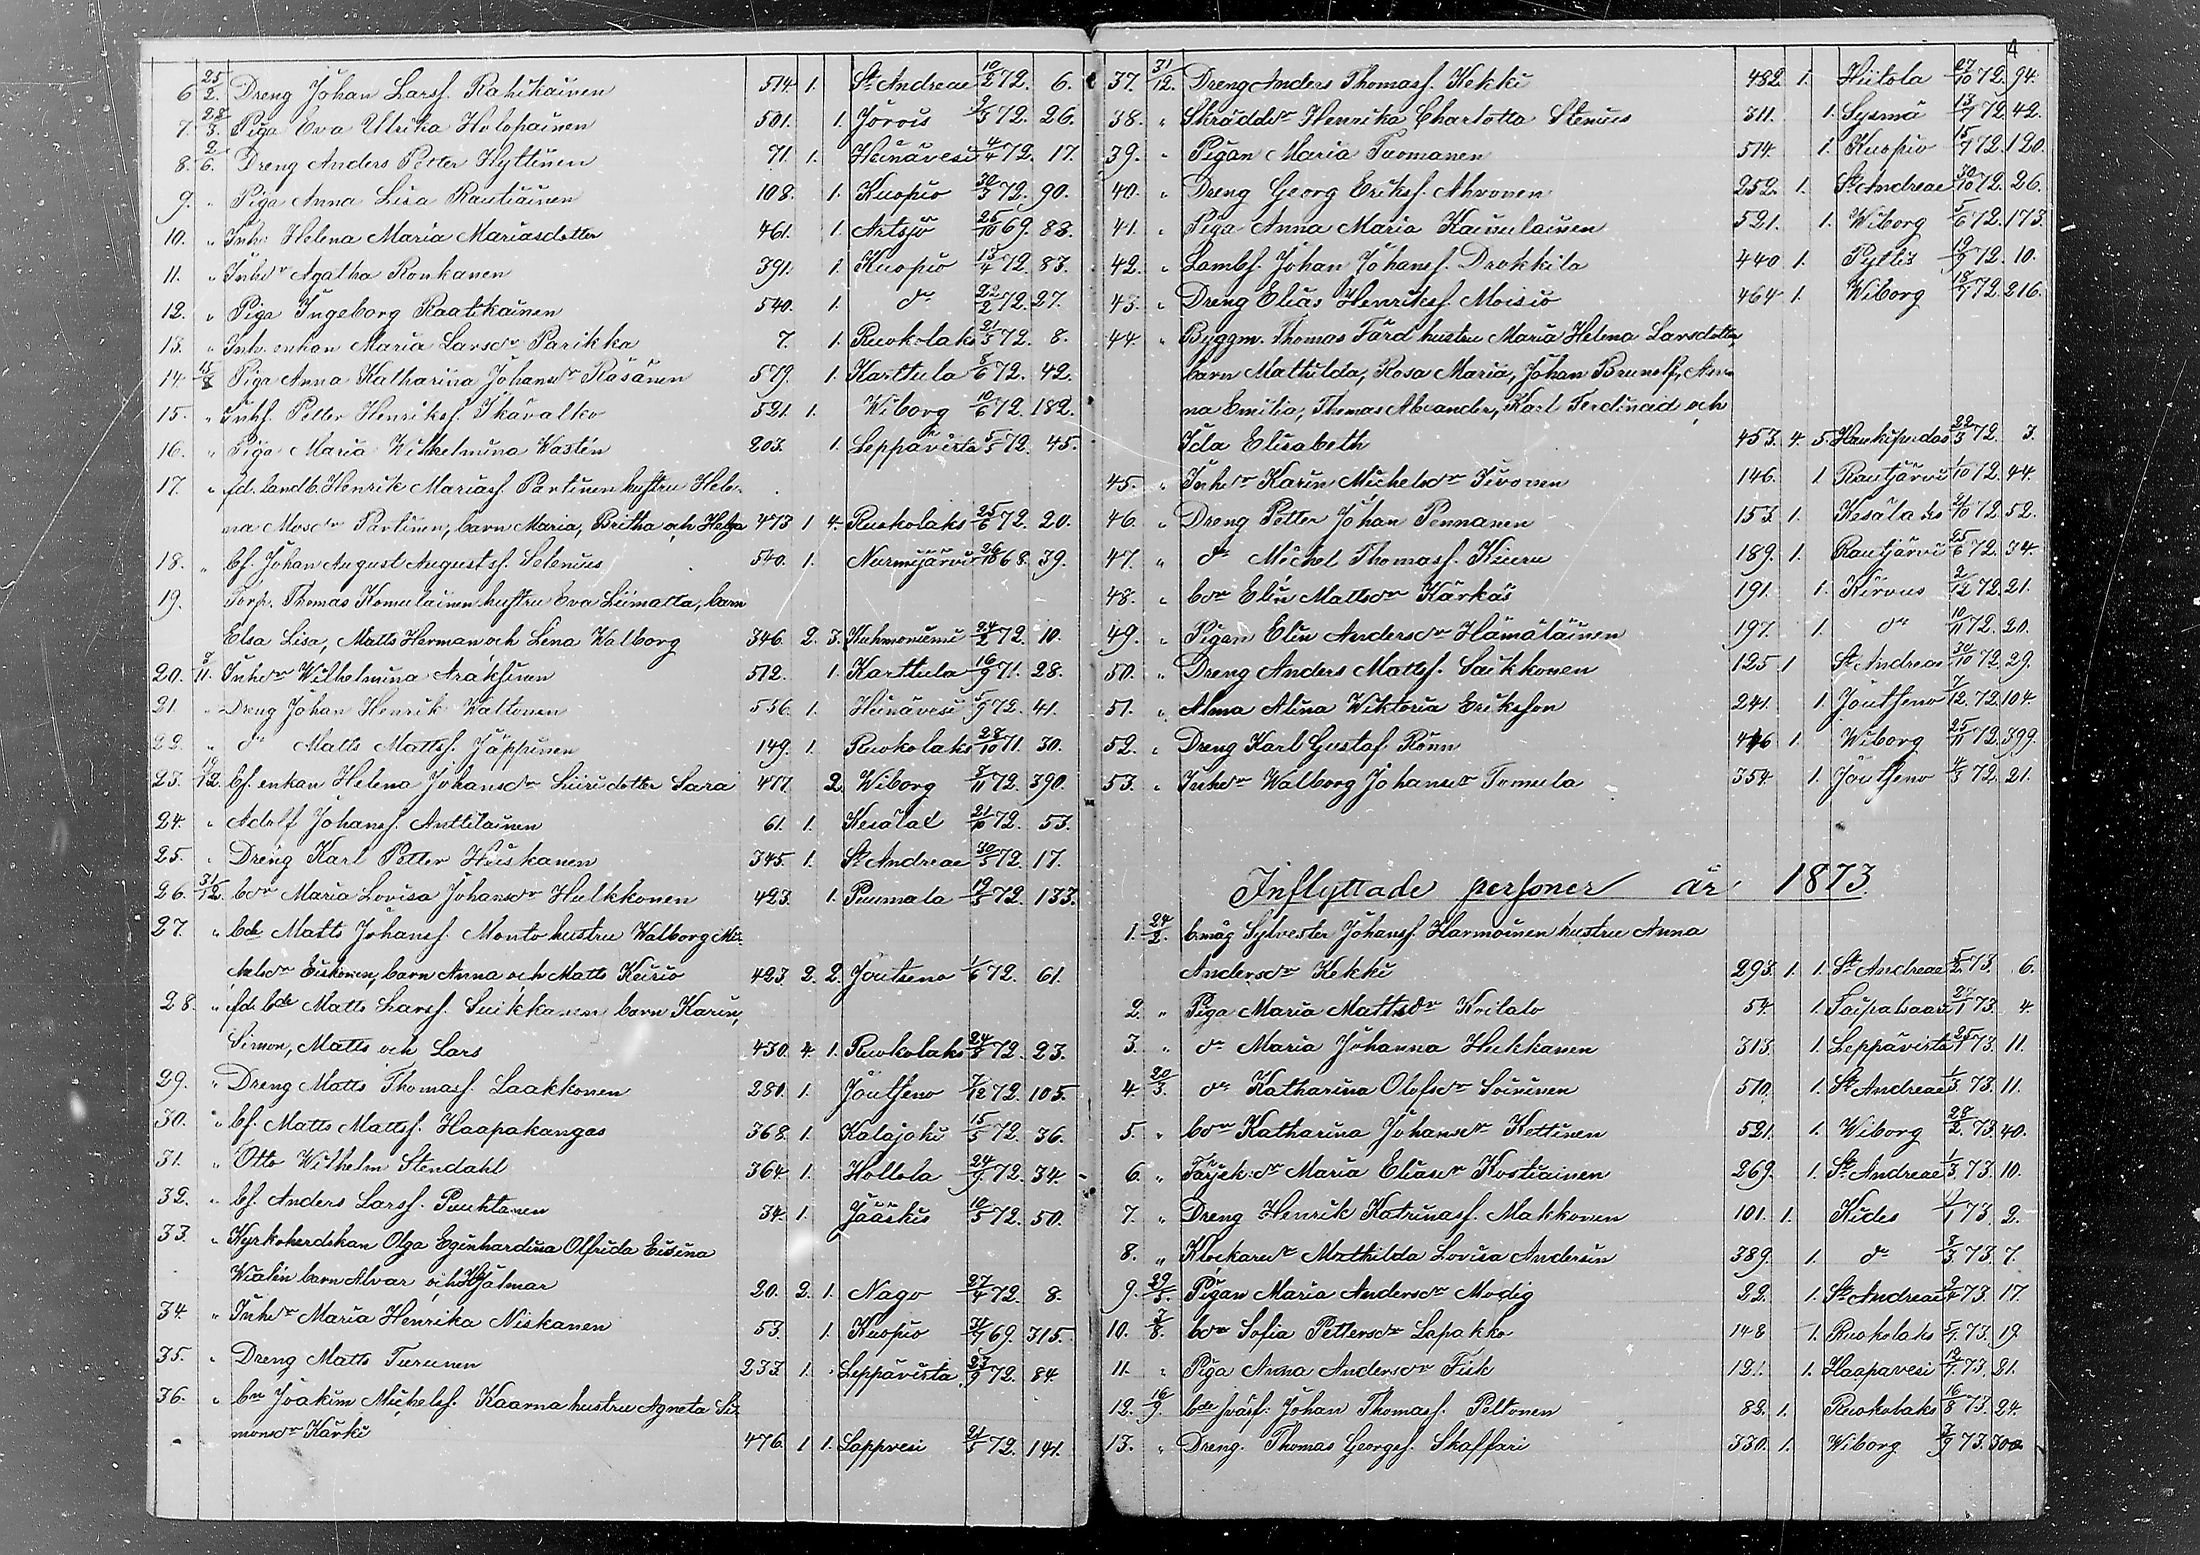 6 25/2. Dreng Johan Larsf. Rahikainen 514 1. St Andreae 10/2 72. 6.
7. 28/3. Piga Eva Ulrika Holopainen 501. 1. Jorois 2/3 72. 26.
8. 2/6. Dreng Anders Petter Hyttinen 71. 1. Heinävesi 4/4 72. 17.
9. " Piga Anna Lisa Rautiainen 108. 1. Kuopio 30/3 72. 90.
10. " Inhr Helena Maria Mariasdotter 461. 1. Artsjö 25/10 69. 83.
11. " Inhr Agatha Ronkanen 391. 1. Kuopio 13/4 72. 83.
12. " Piga Ingeborg Raatikainen 540. 1. do 22/2 72. 27.
13. " Inh. enkan Maria Larsdr Parikka 7. 1. Ruokolaks 21/3 72. 8.
14 15/8 Piga Anna Katharina Johansdr Räsänen 579. 1. Karttula 8/6 72. 42.
15. " Inhf. Petter Henriksf. Ikävalko 521. 1. Wiborg 10/6 72. 182.
16. " Piga Maria Wilhelmina Wastén 203. 1. Leppävirta 5/5 72. 45.
17. " fd. landb. Henrik Mariasf. Partinen hustru Hele-
na Mosdr Partinen, barn Maria, Britha och Helga 473 1 4. Ruokolaks 25/6 72. 20.
18. " bf. Johan August Augustsf. Selenius 540. 1. Nurmijärvi 26/10 68. 39.
19. Torp. Thomas Komulainen hustru Eva Liimatta, barn
Elsa Lisa, Matts Herman och Lena Walborg 346. 2. 3. Kuhmoniemi 24/2 72. 10.
20. 9/11. Inhdr Wilhelmina Araksinen 512. 1. Karttula 16/9 71. 28.
21 " Dreng Johan Henrik Waltonen 536. 1. Heinävesi 5/9 72. 41.
22. " do Matts Mattsf. Jäppinen 149. 1. Ruokolaks 28/10 71. 30.
23. 19/12. bf. enkan Helena Johansdr Liiri dotter Sara 417. 2 Wiborg 8/11 72. 390.
24. " Adolf Johansf. Anttilainen 61. 1. Kesälax 21/10 72. 53.
25. " Dreng Karl Petter Huiskanen 345. 1. St Andreae 30/3 72. 17.
26. 31/12. bdr Maria Lovisa Johansdr Hulkkonen 423. 1. Puumala 19/3 72. 133.
27. " bde Matts Johansf. Monto hustru Walborg Mi-
kelsdr Eskonen, barn Anna och Matts Keisio 423. 2. 2. Joutseno 1/6 72. 61.
28. " fd. bde Matts Larsf. Suikkanen barn Karin,
Simon, Matts och Lars 430. 4. 1. Ruokolaks 24/3 72. 23.
29. " Dreng Matts Thomasf. Laakkonen 280. 1. Joutseno 7/12 72. 105.
30. " bf. Matts Mattsf. Haapakangas 368. 1. Kalajoki 15/5 72. 36.
31. " Otto Wilhelm Stendahl 364. 1. Hollola 24/9 72. 34.
32. " bf. Anders Larsf. Puuktanen 34. 1. Jääskis 10/5 72. 50.
33. " Kyrkoherdskan Olga Eginhardina Olfrida Eisina
Wialén barn Alvar och Hjalmar 20. 2. 1. Nago 27/4 72. 8.
34. " Inhdr Maria Henrika Niskanen 53. 1. Kuopio 31/7 69. 315.
35. " Dreng Matts Turunen 233. 1. Leppävirta 23/9 72. 84.
36. " bn Joakim Michelsf. Kaarna hustru Agneta Si-
monsdr Kärki 476. 1 1. Lappvesi 21/5 72. 141.
4
37. 31/12. Dreng Anders Thomasf. Kekki 482. 1. Hiitola 27/10 72. 94.
38. " Skräddr Henrika Charlotta Stenius 311. 1. Sysmä 13/7 72 42.
39. " Pigan Maria Tuomanen 514. 1. Kuopio 15/7 72. 120.
40. " Dreng Georg Eriksf. Ahvonen 252. 1. St Andreae 30/10 72. 26.
41. " Piga Anna Maria Kainulainen 521. 1. Wiborg 5/6 72. 173.
42. " Lambf. Johan Johansf. Drokkila 440 1. Pyttis 12/9 72. 10.
43. " Dreng Elias Henriksf. Moisio 464 1. Wiborg 18/7 72. 216.
44. " Byggm. Thomas Färd hustru Maria Helena Larsdotter
barn Mathilda, Rosa Maria, Johan Brunolf, An-
na Emilia, Thomas Alexander, Karl Ferdinand och
Ida Elisabeth 453. 4. 5. Haukipudas 22/3 72. 3.
45. " Inhdr Karin Michelsdr Tiivonen 146. 1. Rautjärvi 1/10 72. 44.
46. " Dreng Petter Johan Pennanen 153. 1. Kesälaks 21/10 72. 52.
47. " do Michel Thomasf. Kiuru 189. 1. Rautjärvi 25/6 72. 34.
48. " bdr Elin Mattsdr Kärkäs 191. 1. Kirvus 2/12 72. 21.
49. " Pigan Elin Andersdr Hämäläinen 197. 1. do 10/11 72. 20.
50. " Dreng Anders Mattsf. Saikkonen 125 1 St Andreas 30/10 72. 29.
51. " Alma Alina Wiktoria Eriksson 241. 1. Joutseno 7/12. 72. 104.
52. " Dreng Karl Gustaf Rönn 446 1. Wiborg 25/11 72. 399.
53. " Inhdr Walborg Johansdr Tomula 354. 1. Joutseno 4/3 72. 21.
Inflyttade personer år 1873.
1. 24/2. b.måg Sylvester Johansf. Harmoinen hustru Anna
Andersdr Kekki 293. 1. 1. St Andreae 5/2 73. 6.
2. " Piga Maria Mattsdr Koilalo 54. 1. Taipalsaari 27/1 73. 4.
3. " do Maria Johanna Hukkanen 313. 1. Leppävirta 25/1 73. 11.
4. 20/3. do Katharina Olofsdr Soininen 510. 1. St Andreae 1/3 73. 11.
5. " bdr Katharina Johansdr Kettinen 521. 1. Wiborg 28/2. 73. 40.
6. " Färjek.dr Maria Eliasdr Kostiainen 269. 1. St Andreae 1/3 73. 10.
7. " Dreng Henrik Katrinasf. Makkonen 101. 1. Kides 9/1 73. 2.
8. " Klockaredr Mathilda Lovisa Andersin 389. 1. do 8/3 73. 7.
9. 29/5. Pigan Maria Andersdr Modig 22. 1. St Andreae 2/4 73. 17.
10. 3/8. bdr Sofia Pettersdr Lapakko 148 1. Ruokolaks 5/7. 73. 19.
11. " Piga Anna Andersdr Fisk 121. 1. Haapavesi 12/7. 73. 21.
12. 16/9 bde svåf. Johan Thomasf. Peltonen 82. 1. Ruokolaks 16/8 73. 24.
13. " Dreng. Thomas Georgsf. Skaffari 330. 1. Wiborg 3/9 73. 300.